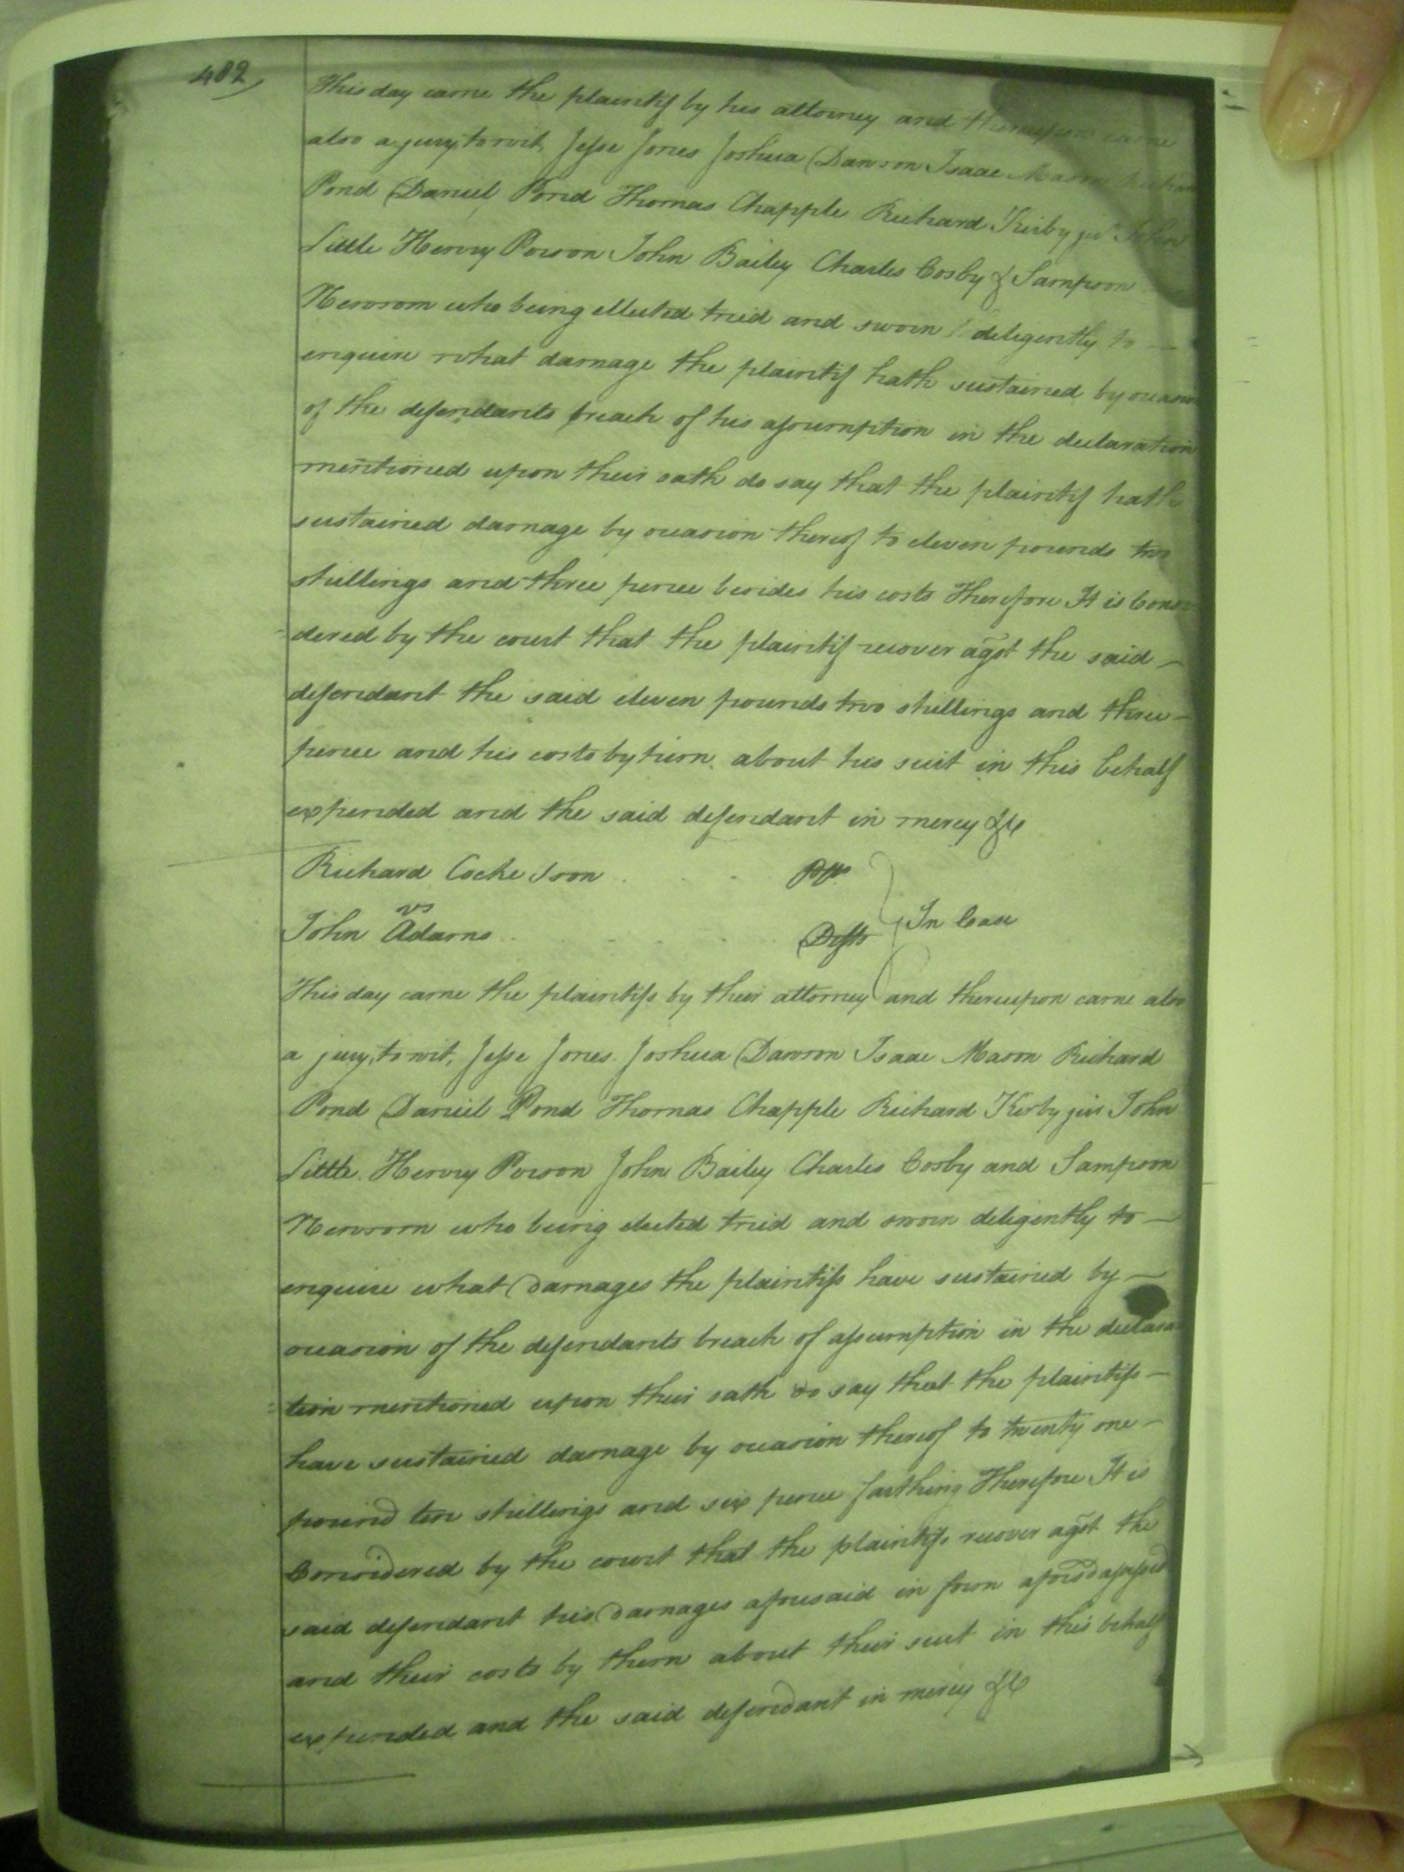 482
This day came the plaintif by his attorney and thereupon came
also a jury, to wit, Jesse Jones Joshua Dawson Isaac Mason
Pond Daniel Pond Thomas Chapple Richard Kirby jur John
Little Henry Powon John Bailey Charles Cosby & Sampson
Newsom who being ellected tried and sworn deligently to —
enquire what damage the plaintif hath sustained by occasion
of the defendants breach of his assumption in the declaration
mentioned upon their oath do say that the plaintif hath
sustained damage by occasion thereof to eleven pounds two
shillings and three pence besides his costs Therefore It is Consi
dered by the court that the plaintif recover agst the said —
defendant the said eleven pounds two shillings and three —
pence and his costs by him about his suit in this behalf
expended and the said defendant in mercy &c
Richard Cocke Pltfs
vs In Case
John Adams Defts
This day came the plaintifs by their attorney and thereupon came also
a jury, to wit, Jesse Jones Joshua Dawson Isaac Mason Richard
Pond Daniel Pond Thomas Chapple Richard Kirby jur John
Little Henry Powon John Bailey Charles Cosby and Sampson
Newsom who being elected tried and sworn deligently to —
enquire what damages the plaintifs have sustained by —
occasion of the defendants breach of assumption in the declara
tion mentioned upon their oath do say that the plaintifs —
have sustained damage by occasion thereof to twenty one —
pound ten shillings and six pence farthing Therefore It is
Considered by the court that the plaintifs recover agst the
said defendant his damages aforesaid in form aforsd assessed
and their costs by them about their suit in this behalf
expended and the said defendant in mercy &c